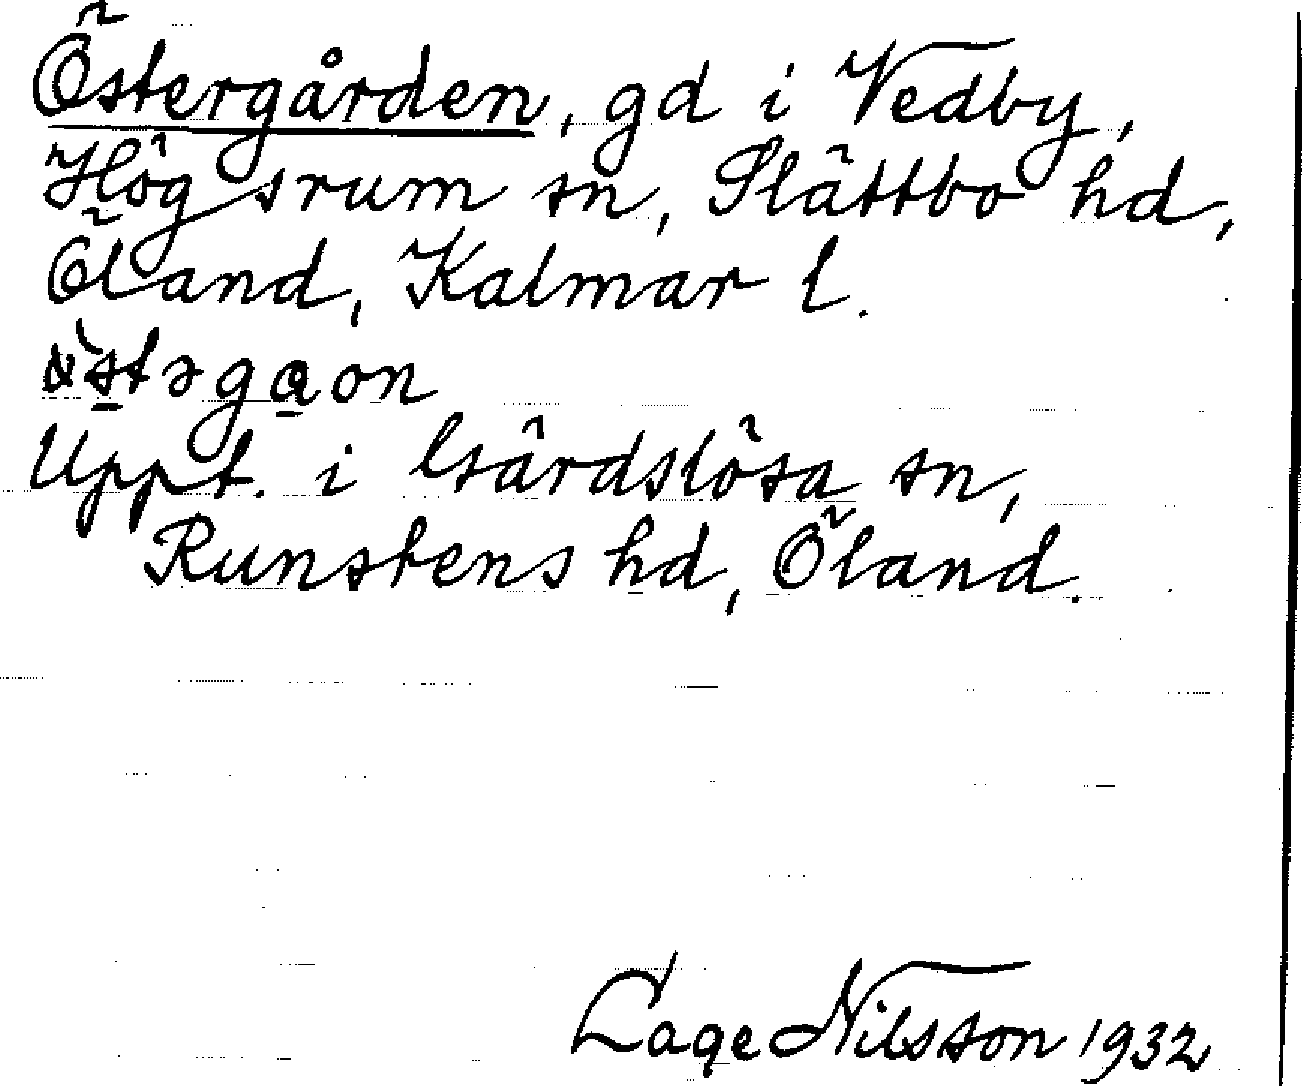 Östergården, gd i Vedby,
Högsrum sn, Slättbo hd,
Öland, Kalmar l.
Uppt. i Gärdslösa sn,
Runstens hd, Öland.
Lage Nilsson 1932